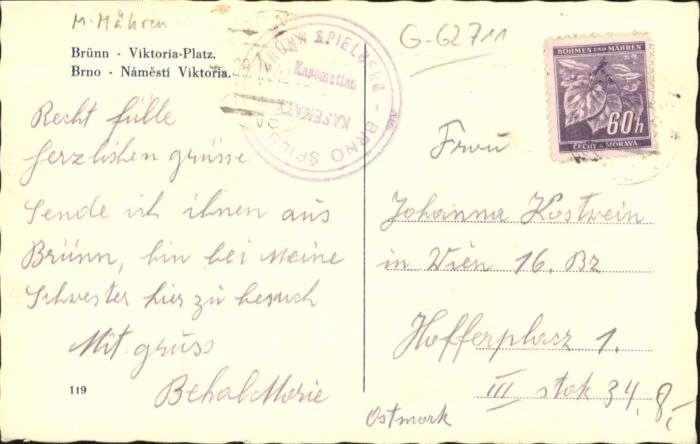 M-Mähren
G-G2711
Brünn - Viktoria-Platz.
Brno - Náměstí Viktoria.
BRÜNN SPIELBERG - BRNO ŠPILB
Kasematten
KASEMATY
BÖHMEN UND MÄHREN
60h
ČECHY A MORAVA
Recht fülle
herzlishen grüsse
Sende ich ihnen aus
Brünn, bin bei Meine
Schwester hier zu besuch
Mit gruss
Behal Marie
119
Frau
Johanna Kostwein
in Wien 16. Bz
Hofferplazz 1.
III stok 34.
8,-
Ostmark